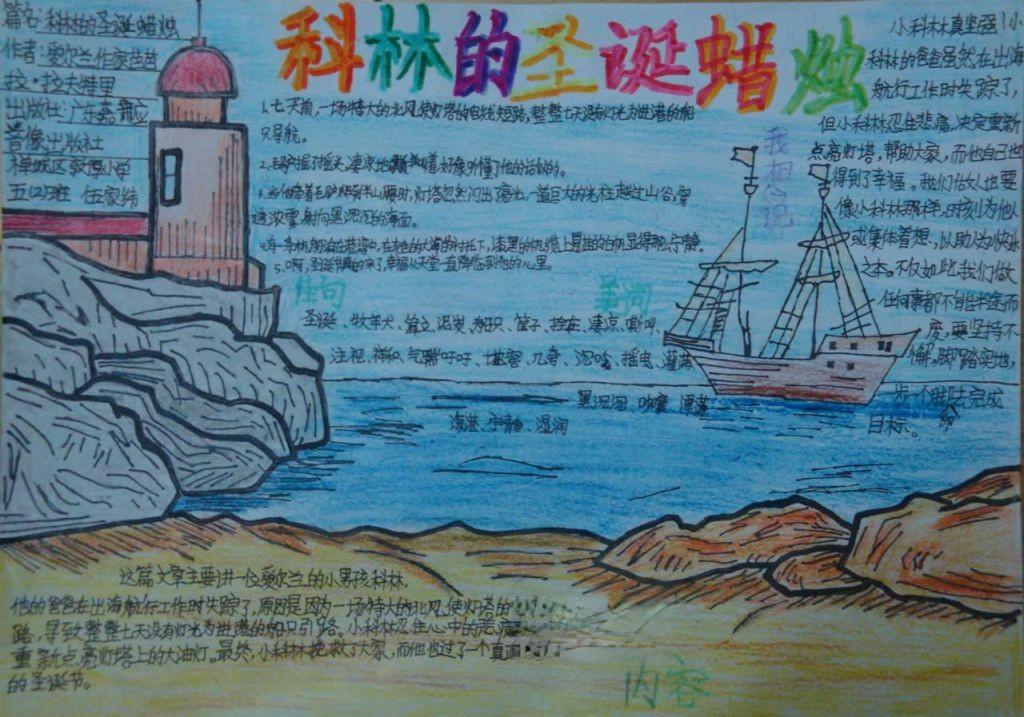 科林的圣诞蜡烛
篇名:科林的圣诞蜡烛
作者:爱尔兰作家芭芭
拉·拉夫特里
出版社:广东嘉应
音像出版社
禅城区敦厚小学
五(2)班 伍家纬
1.七天前,一场特大的北风使灯塔的电线短路,整整七天没有灯光为进港的船
只导航。
3.当他牵着毛驴爬到半山腰时,灯塔忽然闪出亮光,一道巨大的光柱越过山谷,穿
透浓雾,射向黑沉沉的海面。
5.啊,圣诞节真的来了,幸福从天堂一直降临到他的心里。
佳句
圣诞、牧羊犬、耸立、泥炭、船只、筐子、拴在、凄凉、嘶叫、
注视、祥和、气喘吁吁、
黑沉沉、
海港、宁静、湿润
我想说
小科林真坚强!小
科林的爸爸虽然在出海
航行工作时失踪了,
但小科林忍住悲痛,决定重新
点亮灯塔,帮助大家,而他自己也
得到了幸福。我们做人也要
像小科林那样,时刻为他人
或集体着想,以助人为快乐
之本。不仅如此,我们做
任何事都不能半途而
废,要坚持不
懈,脚踏实地,
一步一个脚步去完成
目标。
这篇文章主要讲一位爱尔兰的小男孩科林,
他的爸爸在出海航行工作时失踪了,原因是因为一场特大的北风使灯塔的
路,导致整整七天没有灯光为进港的船只引路。小科林忍住心中的悲
重新点亮灯塔上的大油灯。最终,小科林挽救了大家,而他也过了一个真
的圣诞节。
内容